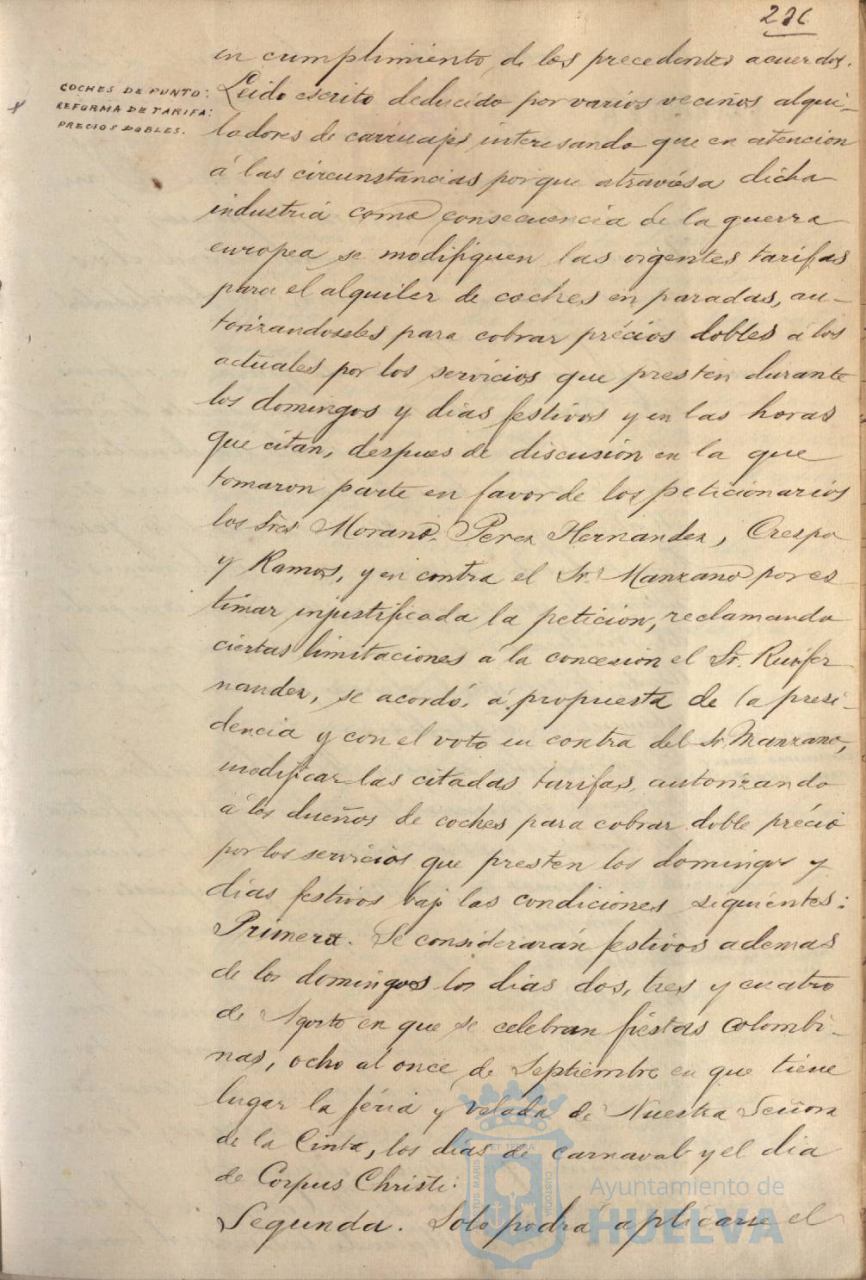 226
en cumplimiento de los precedentes acuerdos.
COCHES DE PUNTO:
REFORMA DE TARIFA:
PRECIOS DOBLES.
Leido escrito deducido por varios vecinos alqui-
ladores de carruajes interesando que en atencion
á las circunstancias porque atraviesa dicha
industria como consecuencia de la guerra
europea se modifiquen las vigentes tarifas
para el alquiler de coches en paradas, au-
torizandoseles para cobrar précios dobles á los
actuales por los servicios que presten durante
los domingos y dias festivos y en las horas
que citan, despues de discusión en la que
tomaron parte en favor de los peticionarios
los Sres Morano, Perez Hernandez, Crespo
y Ramos, y en contra el Sr. Manzano por es
timar injustificada la petición, reclamando
ciertas limitaciones á la concesion el Sr. Ruifer
nandez, se acordó, á propuesta de la presi-
dencia y con el voto en contra del Sr. Manzano,
modificar las citadas tarifas, autorizando
á los dueños de coches para cobrar doble précio
por los servicios que presten los domingos y
dias festivos bajo las condiciones siguientes:
Primera. Se considerarán festivos ademas
de los domingos los dias dos, tres y cuatro
de Agosto en que se celebran fiestas colombi-
nas, ocho al once de Septiembre en que tiene
lugar la féria y velada de Nuestra Señora
de la Cinta, los dias de carnaval y el dia
de Corpus Christi.
Segunda. Solo podrá aplicarse el
Ayuntamiento de
HUELVA